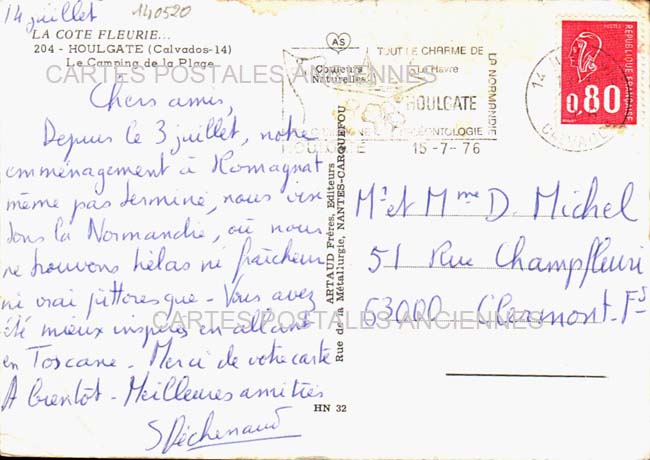 14 juillet
140520
LA COTE FLEURIE...
204 - HOULGATE (Calvados-14)
Le Camping de la Plage
CARTES POSTALES ANCIENNES
Chers amis,
Depuis le 3 juillet, notre
emménagement à Romagnat
même pas terminé, nous visi
tons la Normandie, où nous
ne trouvons hélas ni fraîcheur
ni vrai pittoresque - Vous avez
été mieux inspirés en allant
en Toscane - Merci de votre carte
A bientôt - Meilleures amitiés
SPéchenaud
AS
Couleurs
Naturelles
ARTAUD Frères, Editeurs
Rue de la Métallurgie, NANTES-CARQUEFOU
HN 32
TOUT LE CHARME DE
LA NORMANDIE
Le Havre
HOULGATE
HOULGATE
15-7-76
14
CALVADOS
REPUBLIQUE FRANÇAISE
0,80
Mr et Mme D. Michel
51 Rue Champfleuri
63000 - Clermont-Fd
CARTES POSTALES ANCIENNES